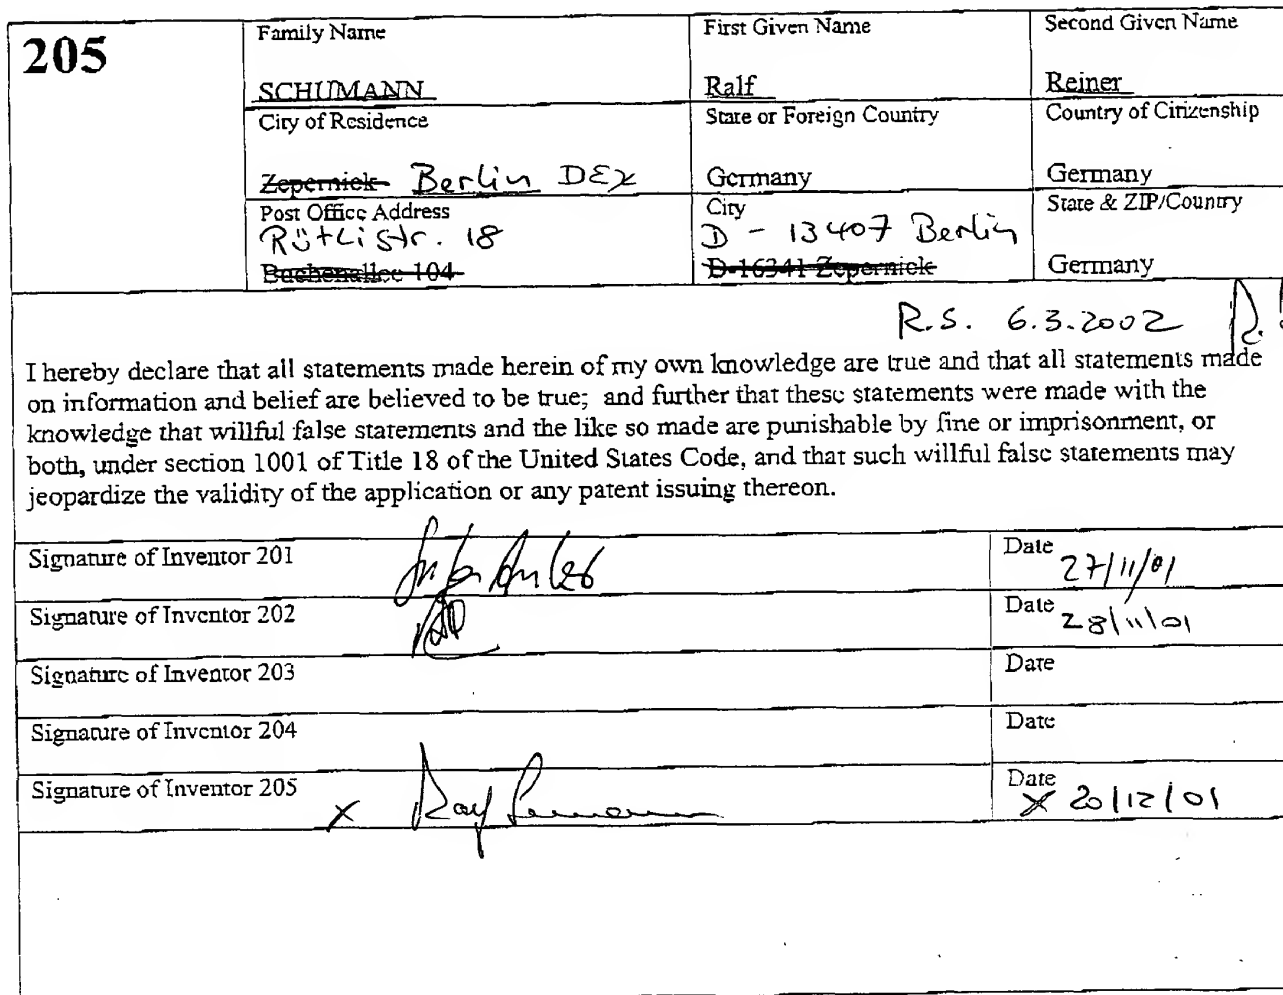 205
Family Name First Given Name Second Given Name
SCHUMANN Ralf Reiner
City of Residence State or Foreign Country Country of Citizenship
Zepernick Berlin DEX Germany Germany
Post Office Address City State & ZIP/Country
Rütlistr. 18 D - 13407 Berlin
Buchenallee 104 D-16341 Zepernick Germany
R.S. 6.3.2002
I hereby declare that all statements made herein of my own knowledge are true and that all statements made
on information and belief are believed to be true; and further that these statements were made with the
knowledge that willful false statements and the like so made are punishable by fine or imprisonment, or
both, under section 1001 of Title 18 of the United States Code, and that such willful false statements may
jeopardize the validity of the application or any patent issuing thereon.
Signature of Inventor 201 Date 27/11/01
Signature of Inventor 202 Date 28/11/01
Signature of Inventor 203 Date
Signature of Inventor 204 Date
Signature of Inventor 205 X Date X 20/12/01